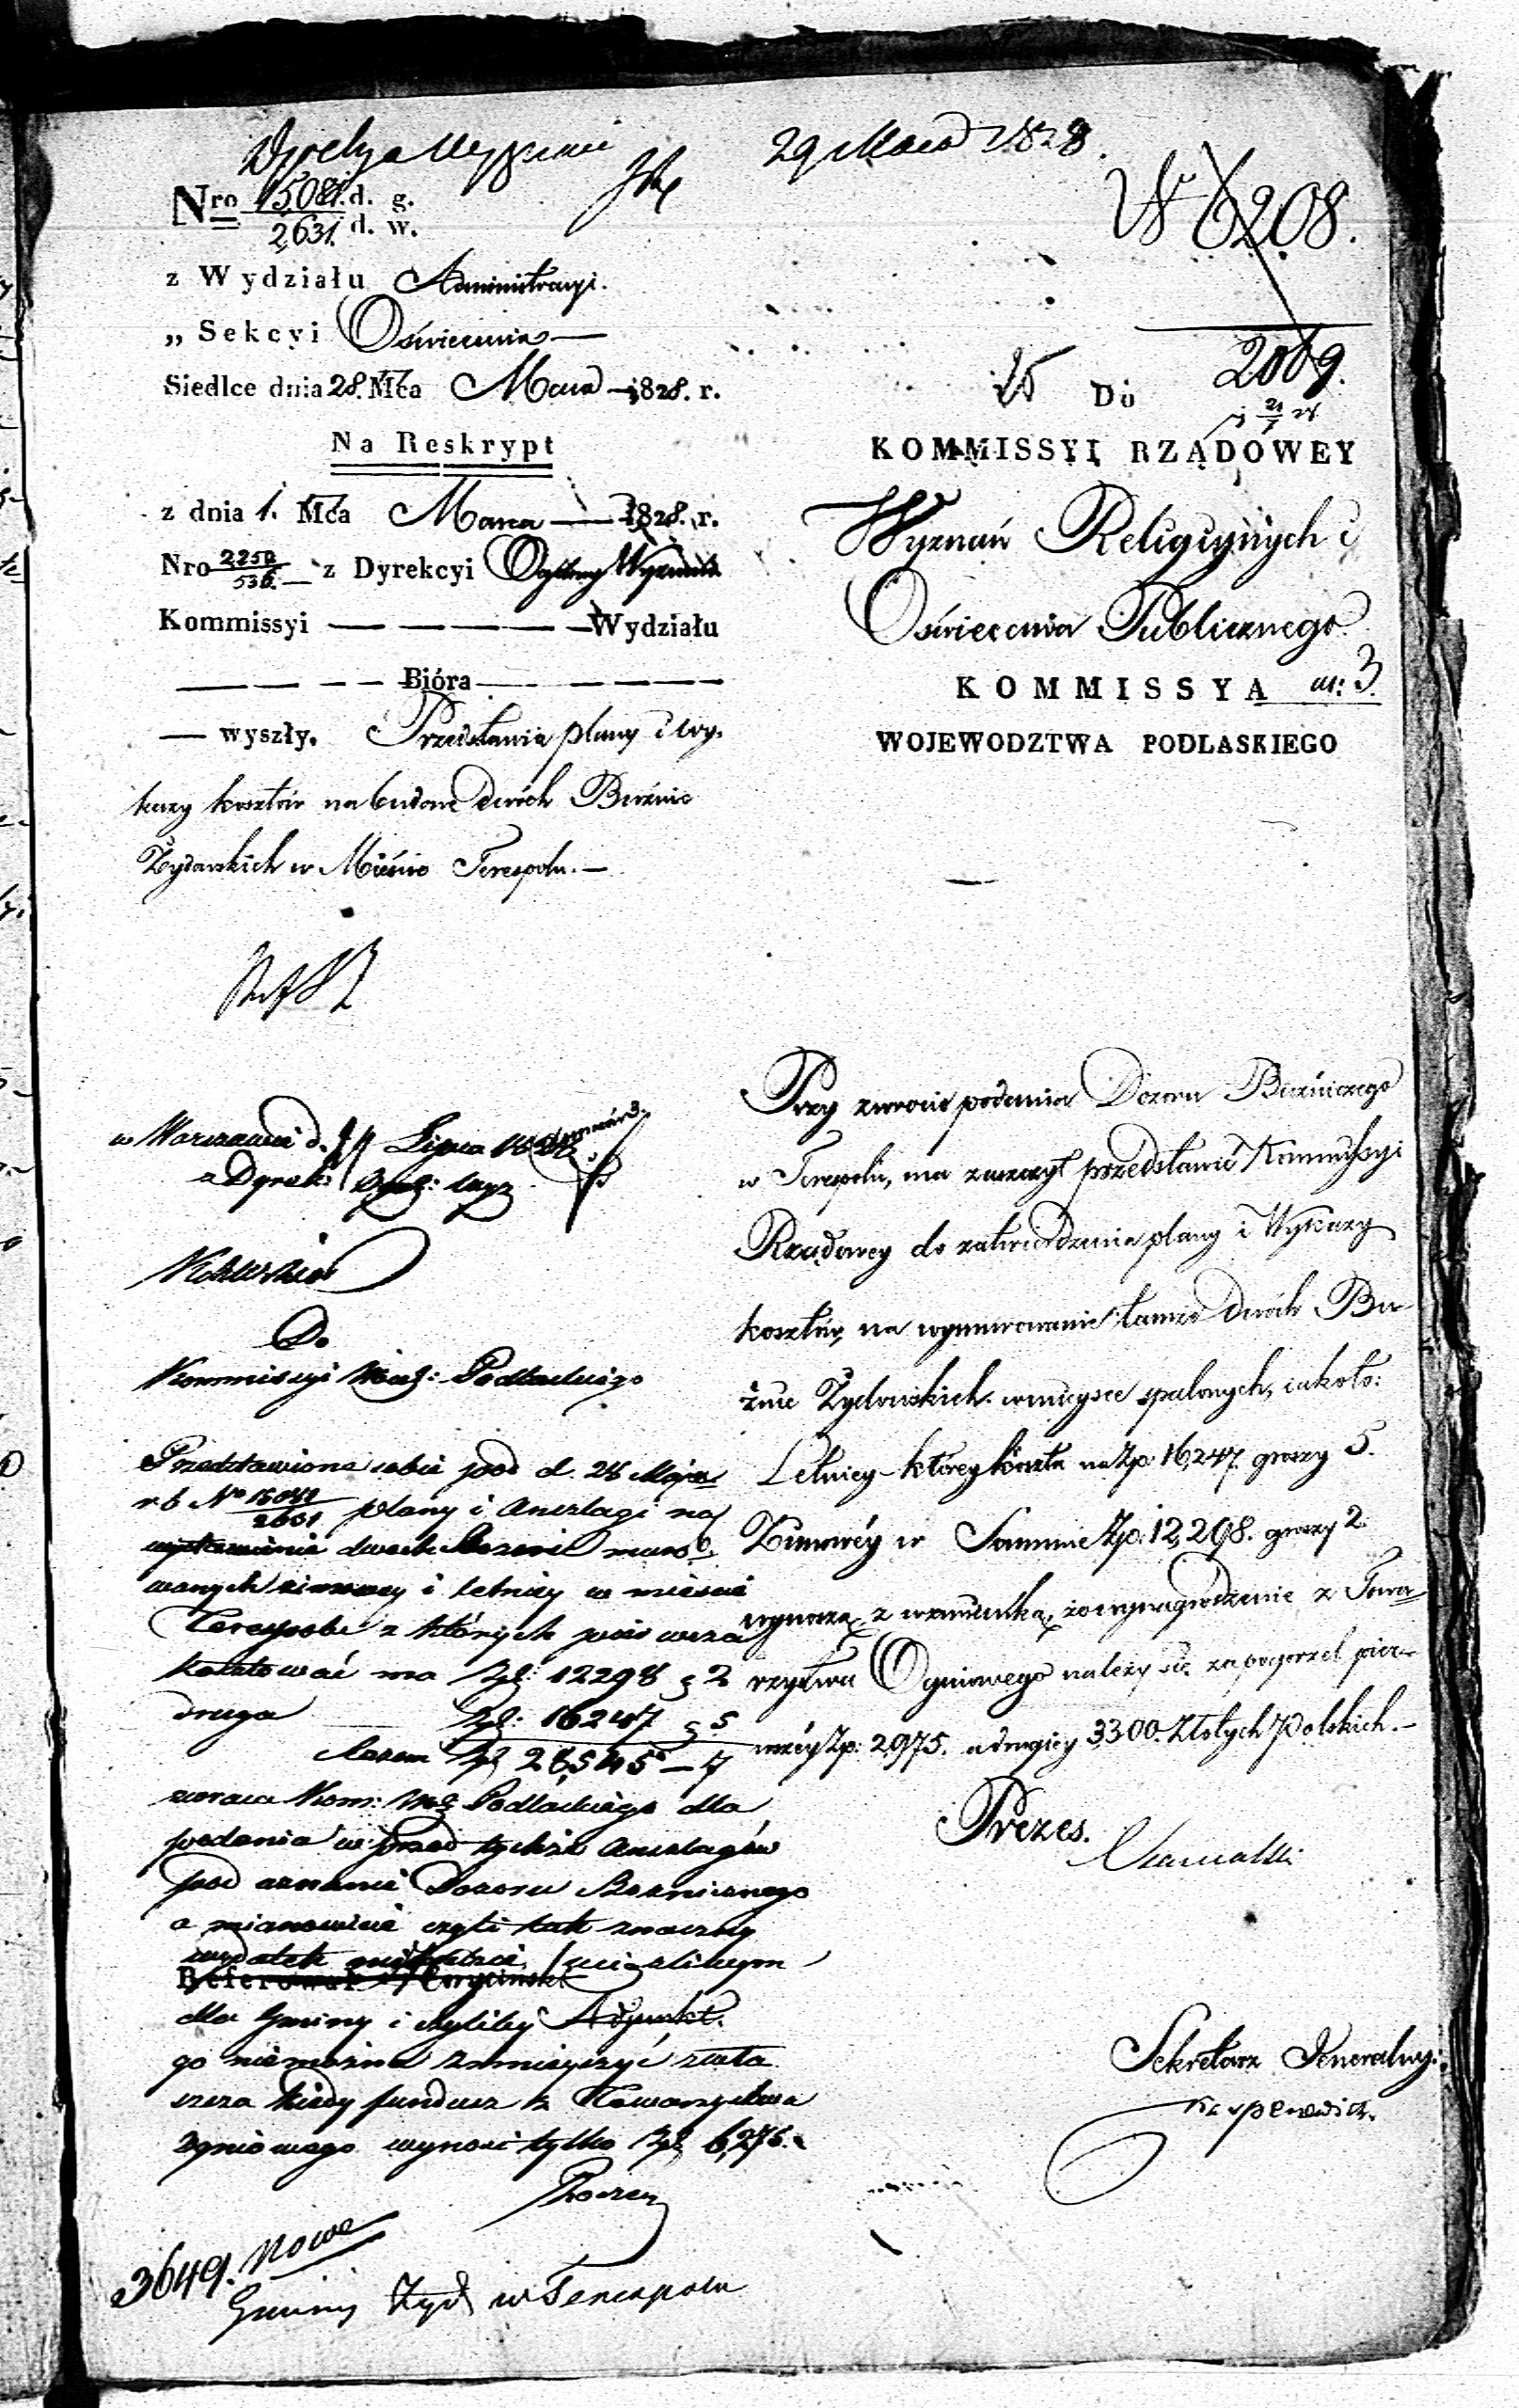 29 Maia 1828.
Nro 15081. d. g.
2,631. d. w.
z Wydziału Administracyi.
„ Sekcyi Oświecenia —
Siedlce dnia 28. Mca Maia — 1828. r.
Na Reskrypt
z dnia 1. Mca Marca — 1828. r.
Nro 2250/536. — z Dyrekcyi Ogólney Wyznań
Kommissyi — — — — — Wydziału
— — — — Bióra — — — —
— wyszły. Przedstawia plany i wy-
kazy kosztów na budowę dwóch Bużnic
Żydowskich w Mieście Terespolu. —
№ 6208.
2069.
25 Do
KOMMISSYI RZĄDOWEY
Wyznań Religiynych i
Oświecenia Publicznego.
KOMMISSYA
WOJEWODZTWA PODLASKIEGO
Przy zwrocie podania Dozoru Bużniczego
w Terespolu, ma zaszczyt przedstawić Kommissyi
Rządowey do zatwierdzenia plany i Wykazy
kosztów, na wymurowanie tamże dwóch Bu-
żnic Żydowskich w mieysce spalonych, iako to:
Letniey – którey koszta na Zp. 16,247. groszy 5.
Zimowéy w Summie Zp. 12,298. groszy 2.
wynoszą, z wzmianką, że wynagrodzenie z Towa-
rzystwa Ogniowego należy się za pogorzel pier-
wszéy Zp. 2975. a drugiey 3300. Złotych Polskich. –
Prezes.
Sekretarz Jeneralny.
w Warszawie d. 11 Lipca
z Dyrek:
Do
Kommissyi Woj: Podlaskiego
Przedstawione sobie pod d. 28 Maja
r b No 15081/2631 plany i anszlagi na
wystawienie dwoch Boznic muro-
wanych zimowey i letniey w miescie
Terespolu z których pierwsza
kosztować ma Zł: 12298 g 2
druga Zł: 16247 g 5
Razem Zł 28,545 – 7
zwraca Kom: Woj Podlaskiego dla
podania w przod tychże anszlagów
pod uznanie Dozoru Boznicznego
a mianowicie czyli tak znaczny
wydatek nie będzie uciążliwym
Referował
dla Gminy i czyliby Adjunkt.
go niemożna zmnieyszyć zwła
szcza kiedy fundusz z Towarzystwa
Ogniowego wynosi tylko Zł. 6,275.
3649. Nowe
Gminy Żyd w Terespolu